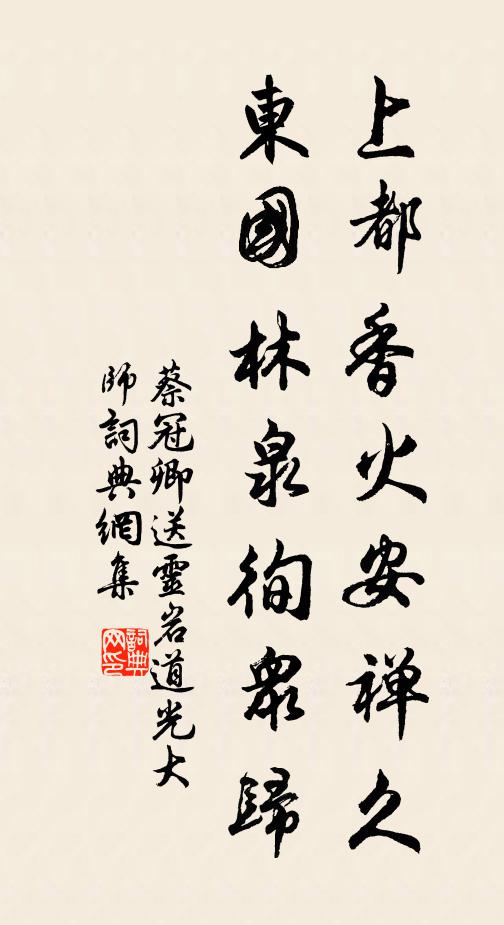 上都香火安禅久
東國林泉徇眾歸
蔡冠卿送靈岩道光大
師詞典網集
詞典
网印